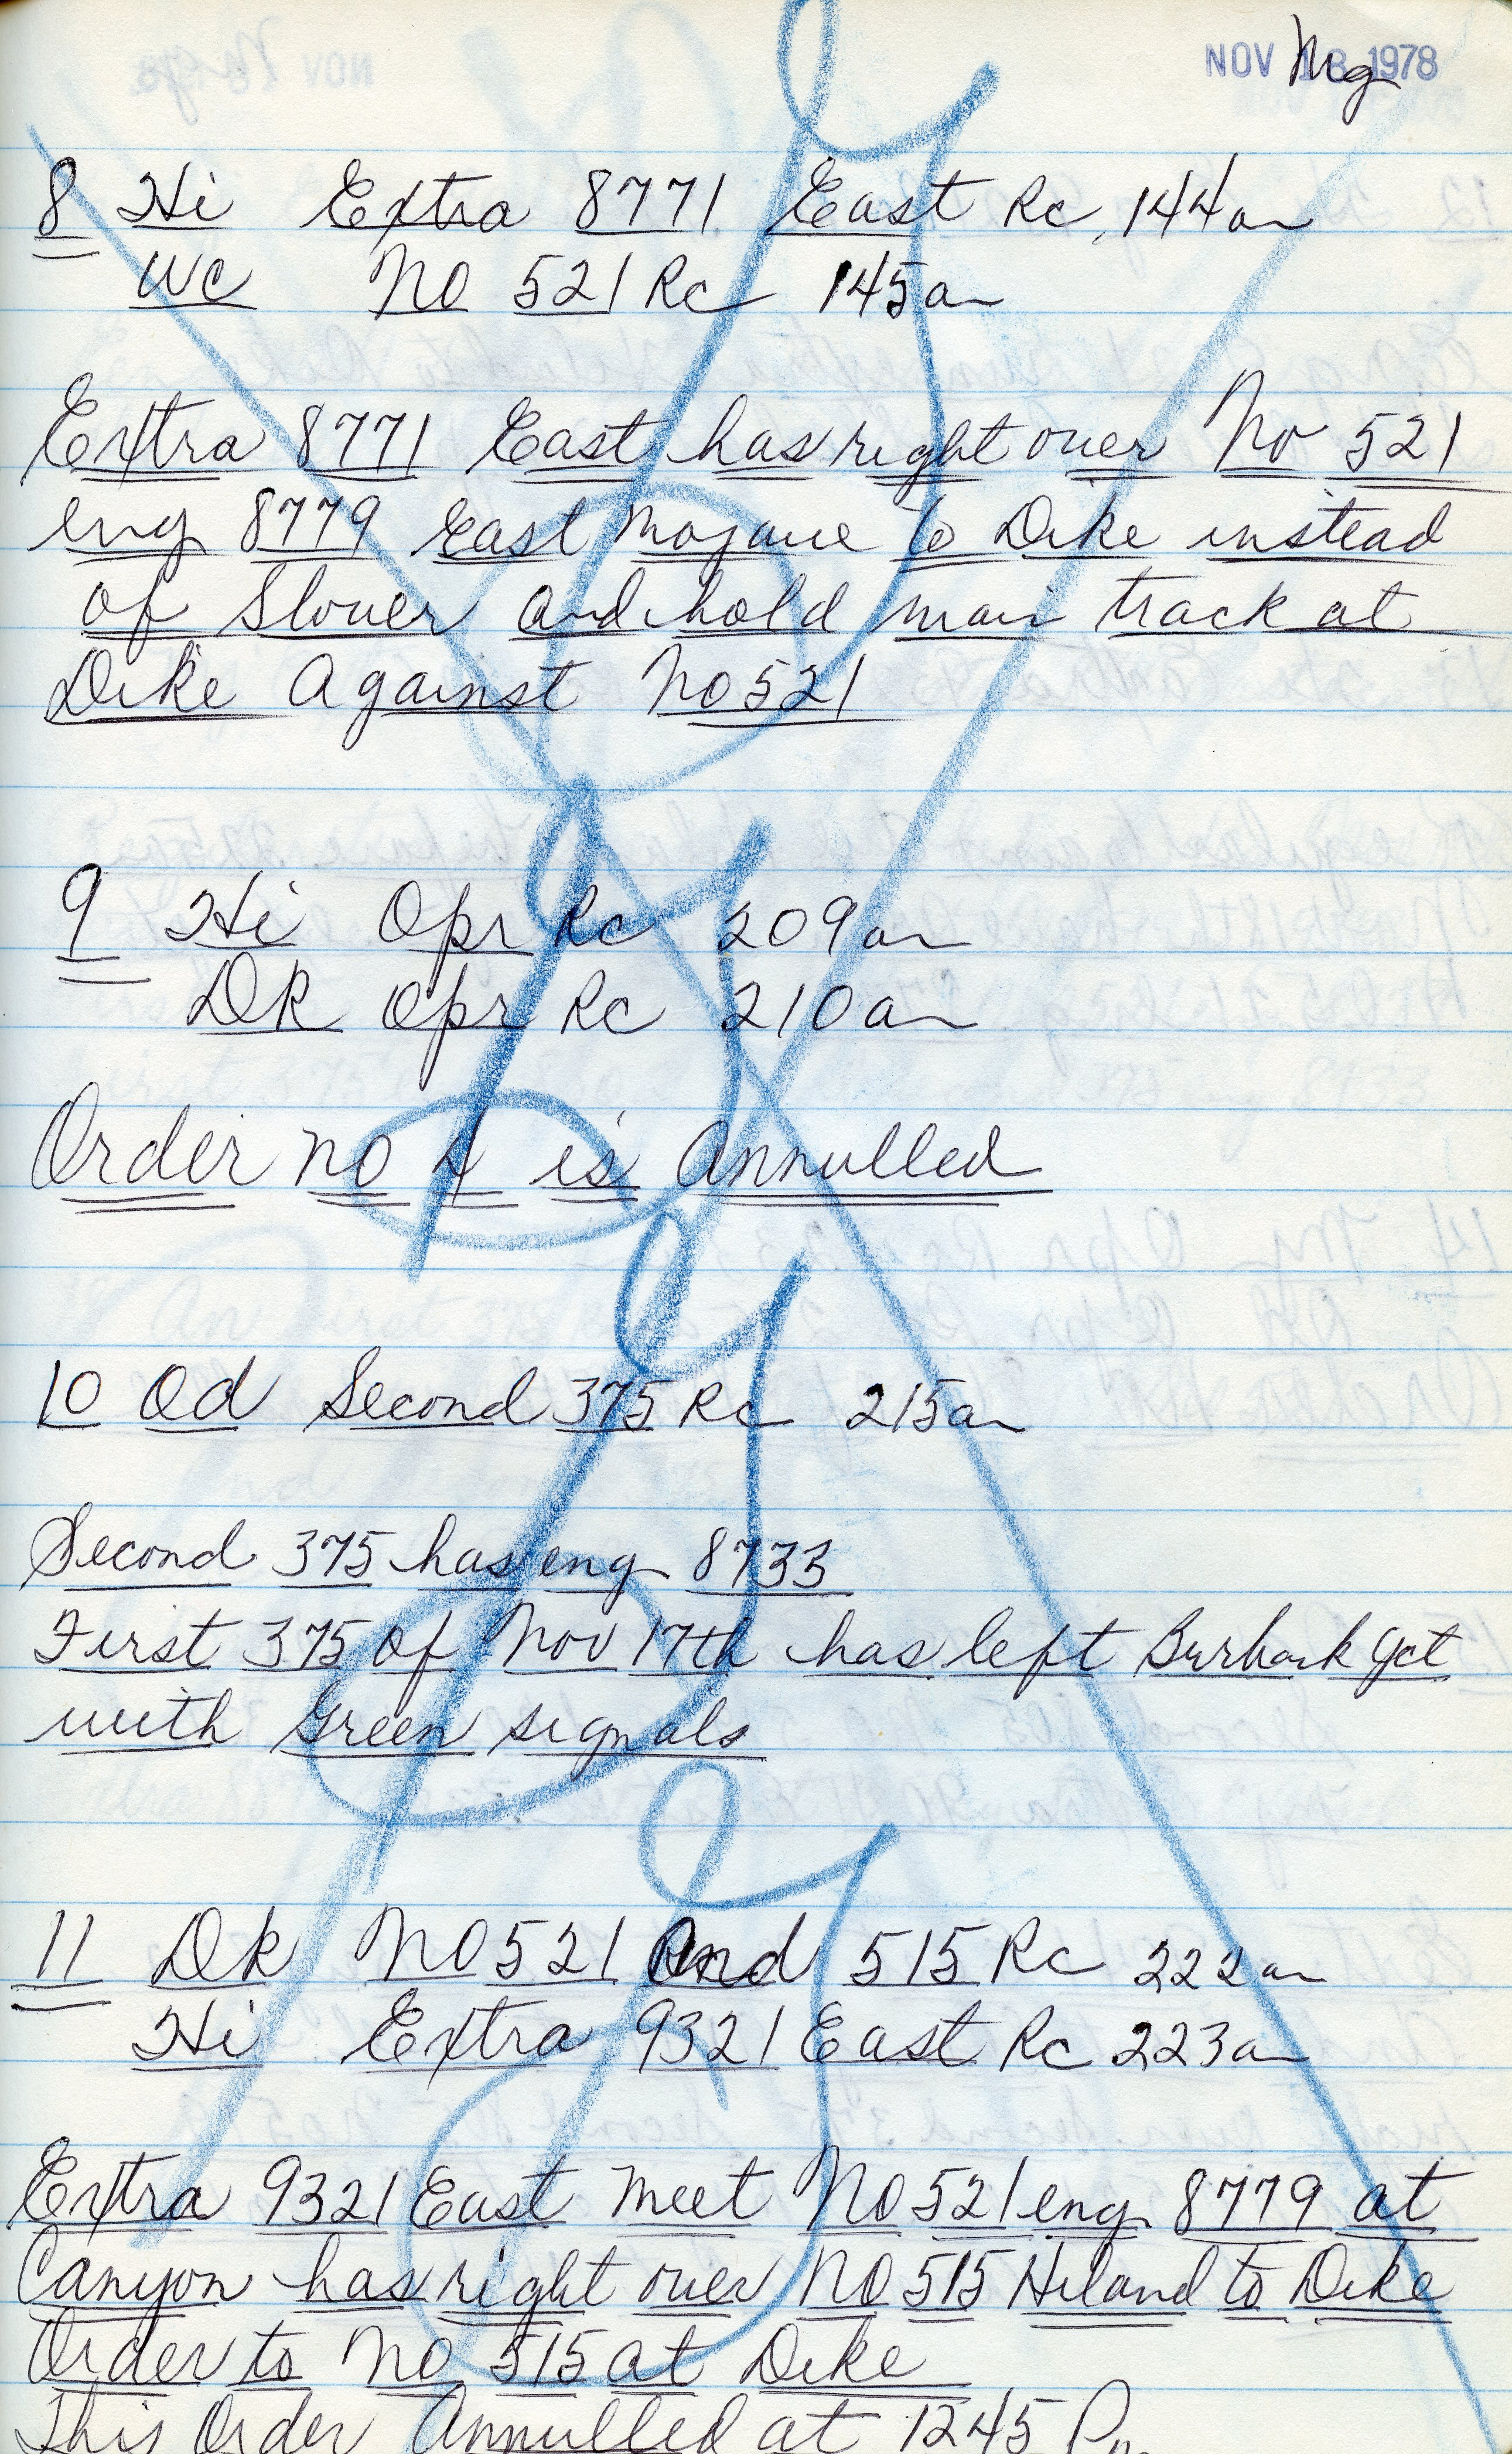 NOV 18 1978
Mg
8 Hi Extra 8771 East Rc 144am
WC No 521 Rc 145am
Extra 8771 East has right over No 521
eng 8779 East Mojave to Dike instead
of Slover and hold main track at
Dike Against No 521
9 Hi Opr Rc 209am
DK Opr Rc 210am
Order no 4 is Annulled
10 Od Second 375 Rc 215am
Second 375 has eng 8733
First 375 of Nov 17th has left Burbank Jct
with Green signals
11 Dk No 521 And 515 Rc 222am
Hi Extra 9321 East Rc 223am
Extra 9321 East meet No 521 eng 8779 at
Canyon has right over No 515 Hiland to Dike
Order to No 515 at Dike
This Order Annulled at 1245 Pm